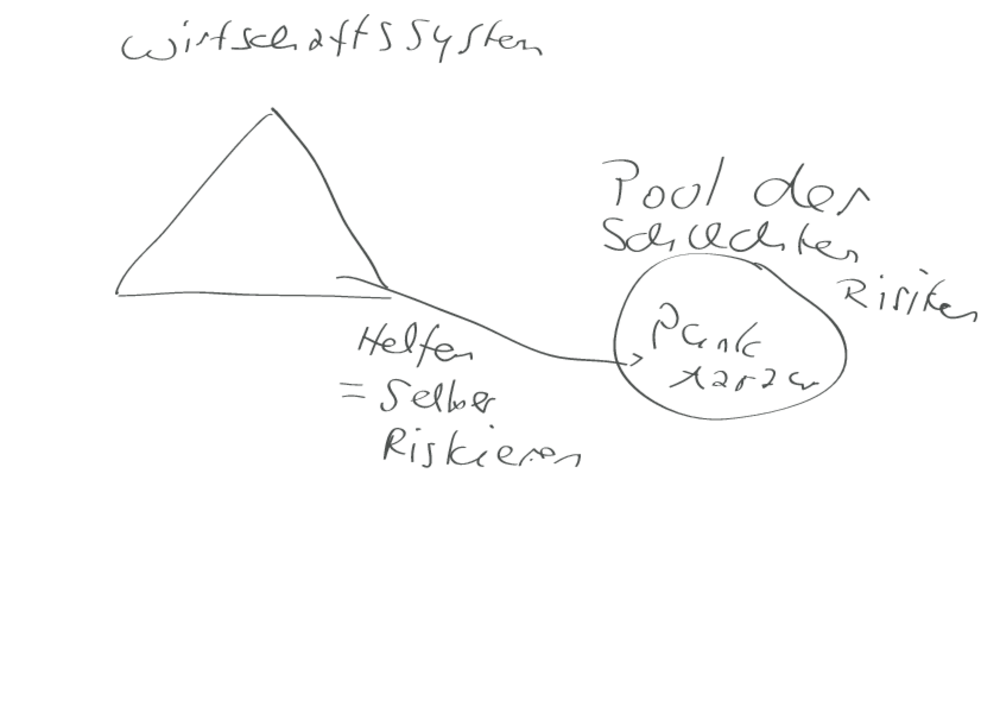 Wirtschaftssystem
Pool der
Schlechten
Risiken
Helfen
= Selber
Riskieren
Punk